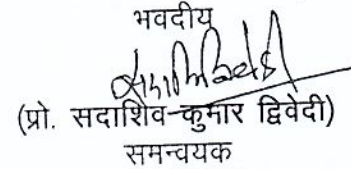 भवदीय
(प्रो. सदाशिव कुमार द्विवेदी)
समन्वयक